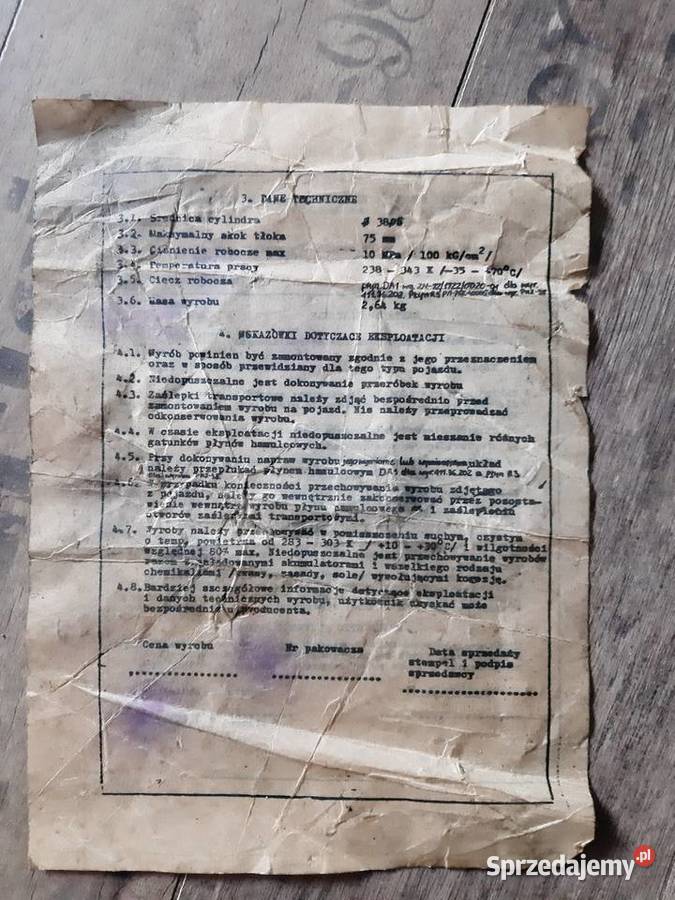 3. DANE TECHNICZNE
3.1. Średnica cylindra
3.2. Maksymalny skok tłoka 75 mm
3.3. Ciśnienie robocze max 10 MPa / 100 kG/cm²/
3.4. Temperatura pracy 238 - 343 K /-35 - +70°C/
3.5. Ciecz robocza płyn DA1 wg
3.6. Masa wyrobu 2,64 kg
4. WSKAZÓWKI DOTYCZĄCE EKSPLOATACJI
4.1. Wyrób powinien być zamontowany zgodnie z jego przeznaczeniem
oraz w sposób przewidziany dla tego typu pojazdu.
4.2. Niedopuszczalne jest dokonywanie przeróbek wyrobu
4.3. Zaślepki transportowe należy zdjąć bezpośrednio przed
zamontowaniem wyrobu na pojazd. Nie należy przeprowadzać
odkonserwowania wyrobu.
4.4. W czasie eksploatacji niedopuszczalne jest mieszanie różnych
gatunków płynów hamulcowych.
4.5. Przy dokonywaniu napraw wyrobu jego wymianie lub układ
należy przepłukać płynem hamulcowym DA1
4.6. W przypadku konieczności przechowywania wyrobu zdjętego
z pojazdu, należy go wewnętrznie zakonserwować przez pozosta-
wienie wewnątrz wyrobu płynu hamulcowego i zaślepieniu
otworów zaślepkami transportowymi.
4.7. Wyroby należy przechowywać w pomieszczeniu suchym, czystym
o temp. powietrza od 283 - 303 K / +10 - +30°C/ i wilgotności
względnej 80% max. Niedopuszczalne jest przechowywanie wyrobów
razem z ładowanymi akumulatorami i wszelkiego rodzaju
chemikaliami /kwasy, zasady, sole/ wywołującymi korozję.
4.8. Bardziej szczegółowe informacje dotyczące eksploatacji
i danych technicznych wyrobu, użytkownik uzyskać może
bezpośrednio u producenta.
Cena wyrobu Nr pakowacza Data sprzedaży
stempel i podpis
sprzedawcy
Sprzedajemy.pl